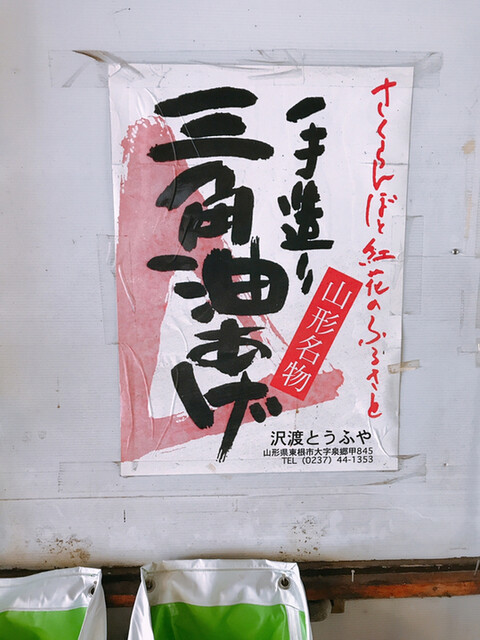 さくらんぼと紅花のふるさと
手造り
三角油あげ
山形名物
沢渡とうふや
山形県東根市大字泉郷甲845
TEL (0237) 44-1353